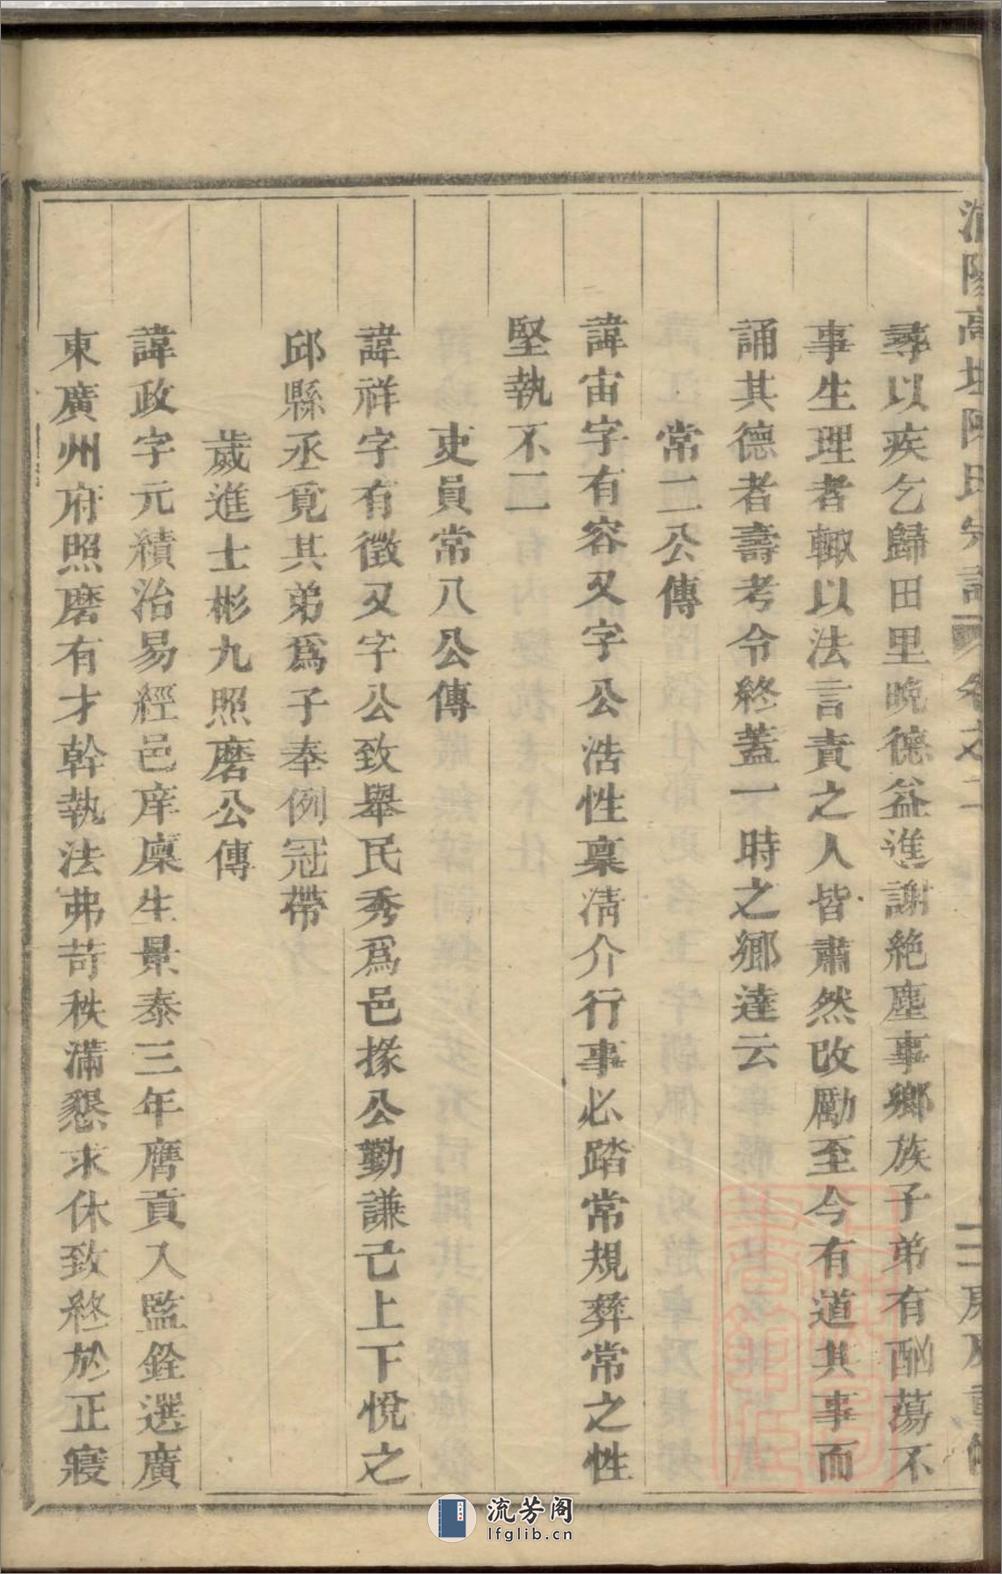 尋以疾乞歸田里晚德益進謝絶塵事鄉族子弟有酗蕩不
事生理者輙以法言責之人皆肅然改勵至今有道其事而
誦其德者壽考令終蓋一時之鄉達云
常二公傳
諱宙字有容又字公浩性稟清介行事必踏常規彛常之性
堅執不二
吏員常八公傳
諱祥字有徵又字公致舉民秀爲邑掾公勤謙己上下悅之
邱縣丞覓其弟爲子奉例冠帶
歲進士彬九照磨公傳
諱政字元績治易經邑庠廩生景泰三年膺貢入監銓選廣
東廣州府照磨有才幹執法弗苛秩滿懇求休致終於正寢
流芳阁
lfglib.cn